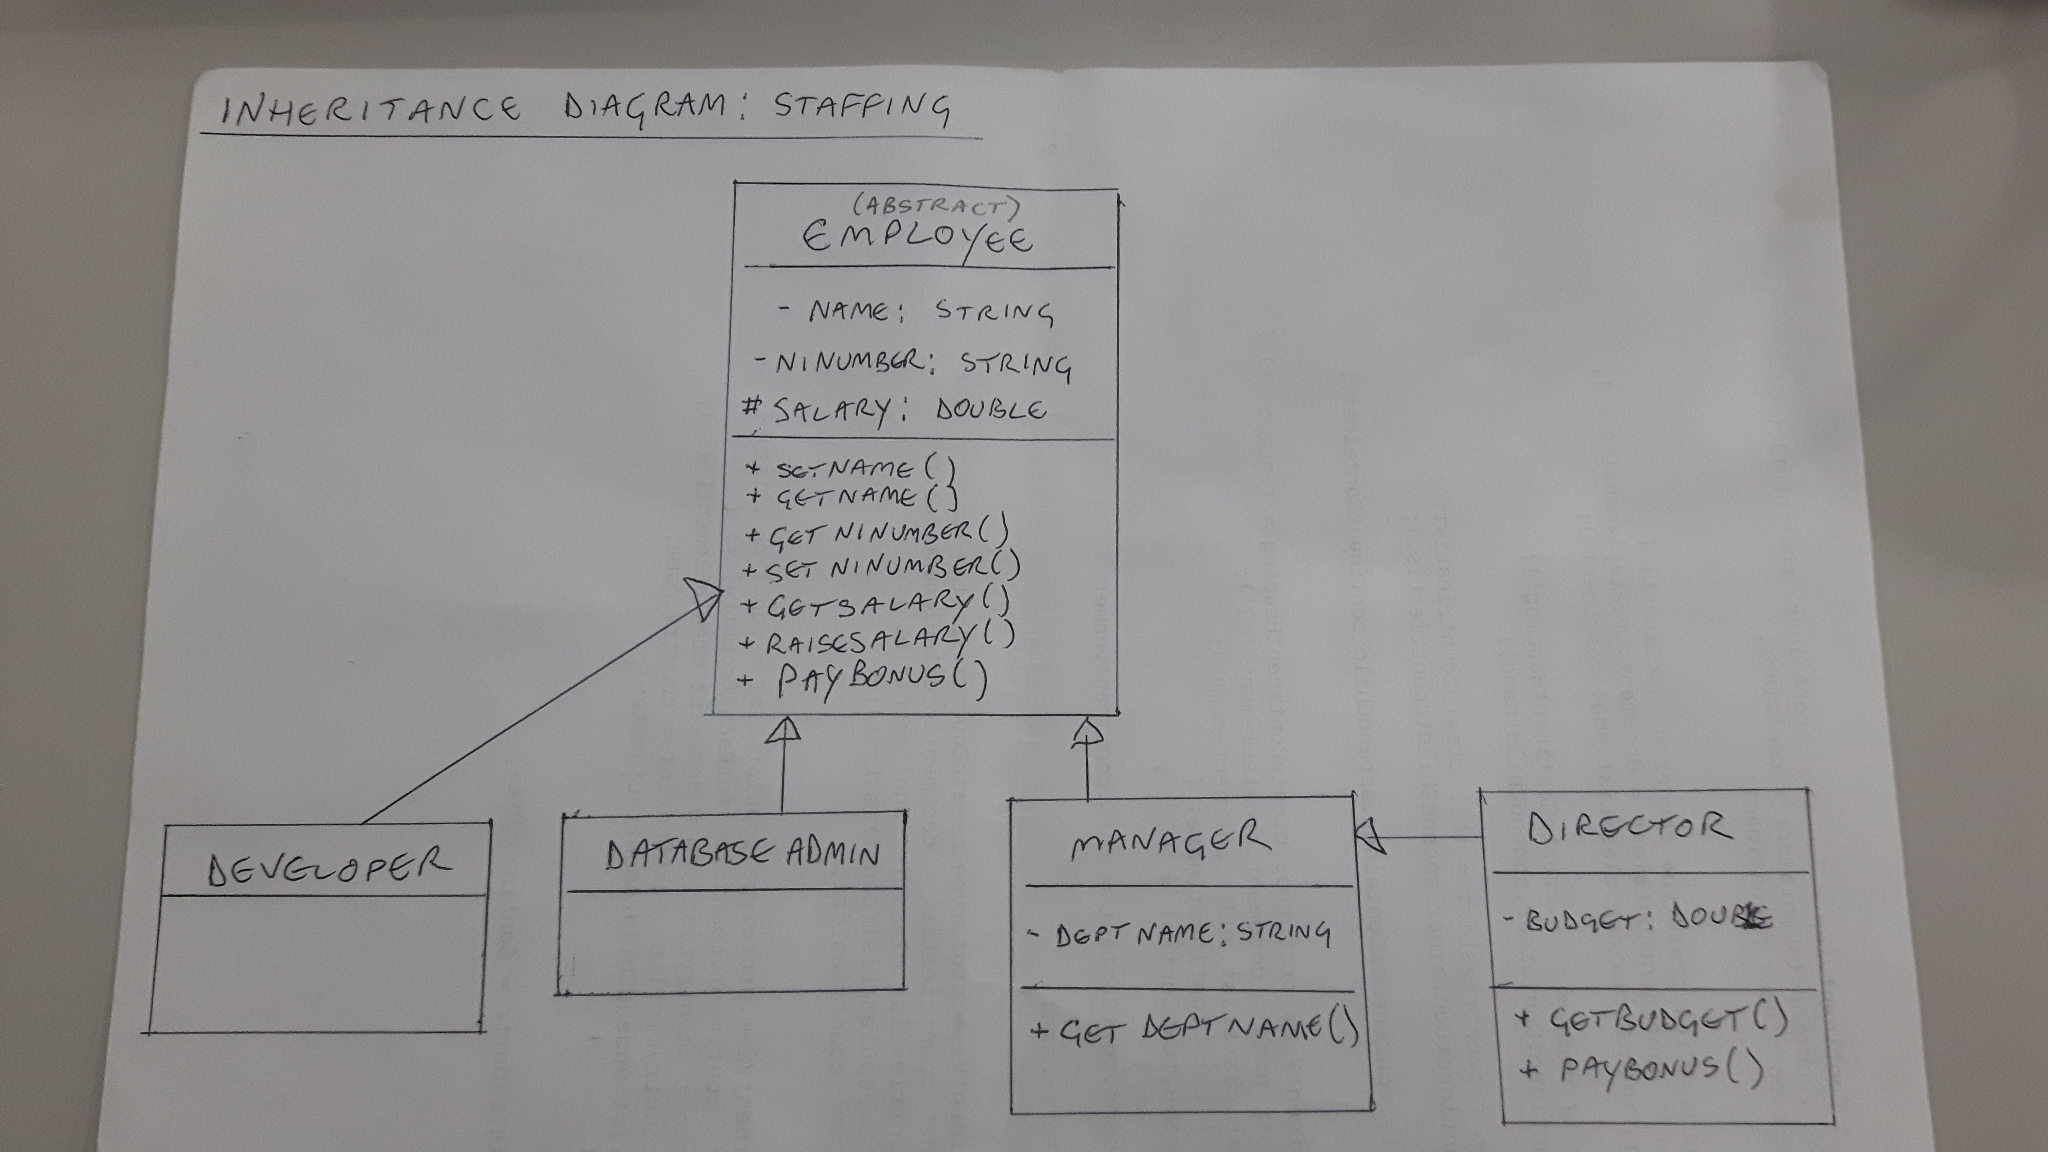 INHERITANCE DIAGRAM: STAFFING
(ABSTRACT)
EMPLOYEE
- NAME: STRING
- NINUMBER: STRING
# SALARY: DOUBLE
+ SETNAME()
+ GETNAME()
+ GET NINUMBER()
+ SET NINUMBER()
+ GETSALARY()
+ RAISESALARY()
+ PAYBONUS()
DEVELOPER
DATABASE ADMIN
MANAGER
- DEPT NAME: STRING
+ GET DEPTNAME()
DIRECTOR
- BUDGET: DOUBLE
+ GETBUDGET()
+ PAYBONUS()